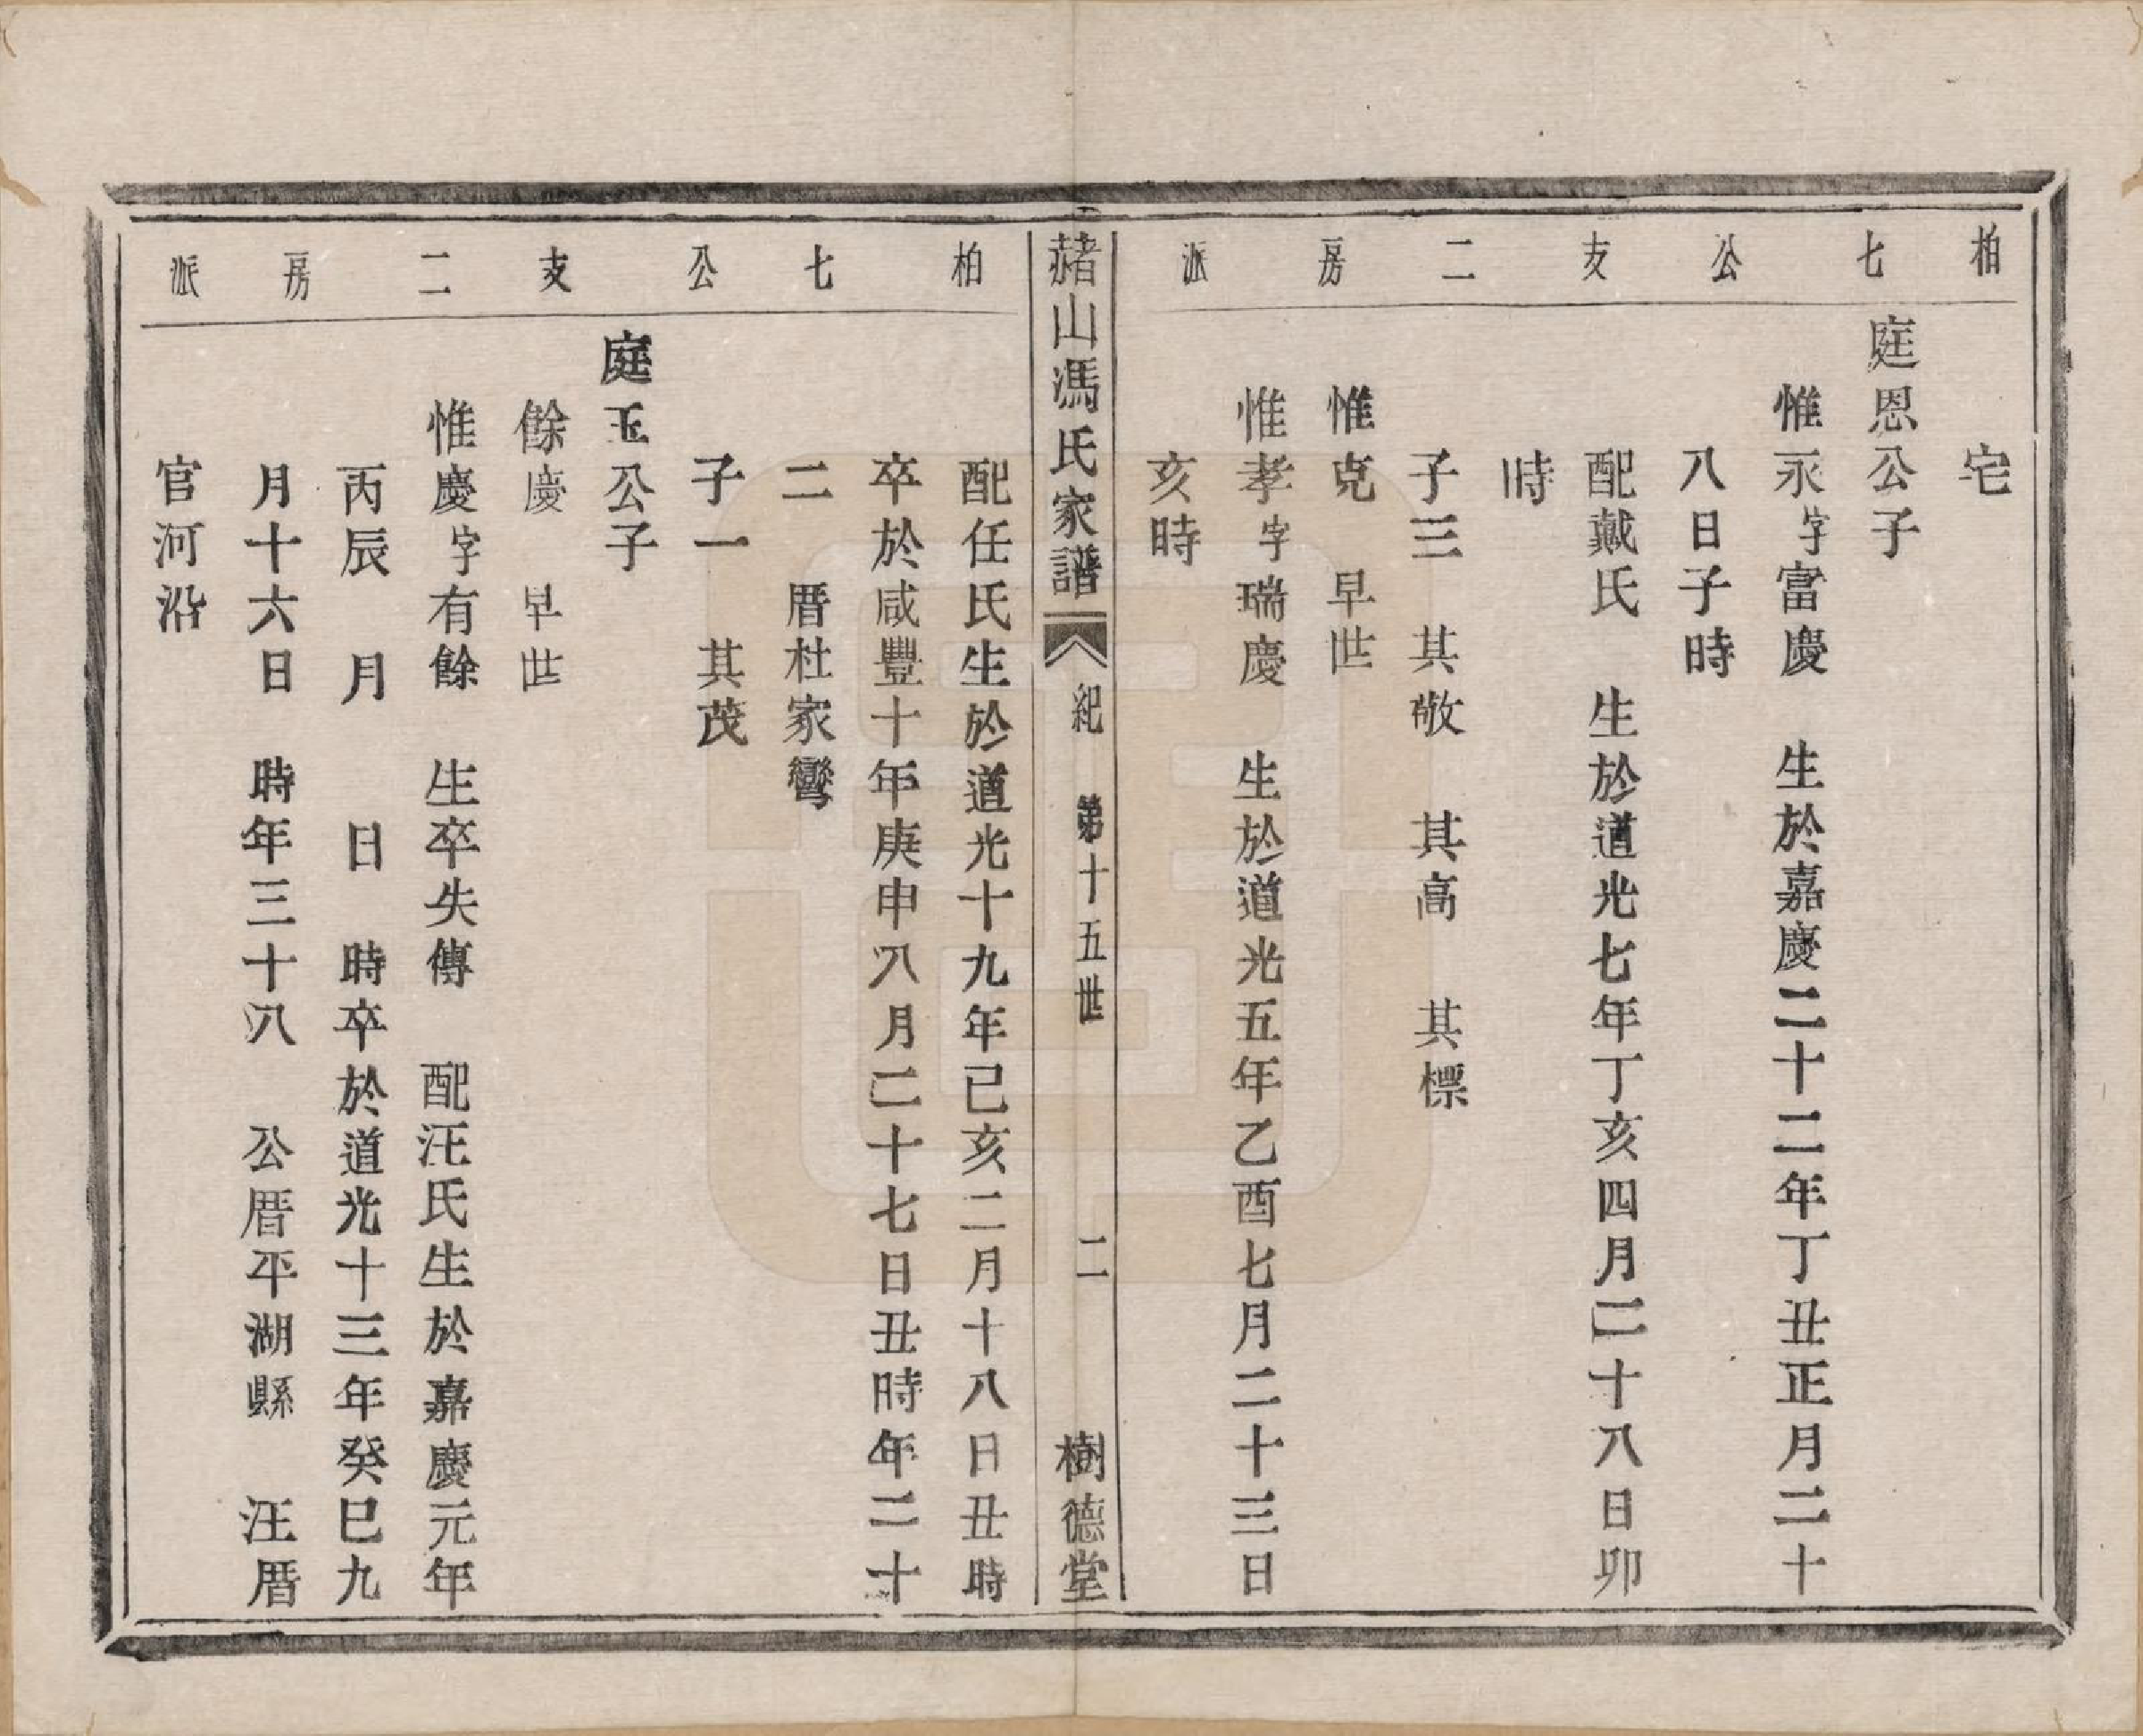 柏七公支二房派
宅
庭恩公子
惟永字富慶　生於嘉慶二十二年丁丑正月二十
八日子時
配戴氏　生於道光七年丁亥四月二十八日卯
時
子三　其敬　其高　其標
惟克　早世
惟孝字瑞慶　生於道光五年乙酉七月二十三日
亥時
赭山馮氏家譜　紀　第十五世　二　樹德堂
柏七公支二房派
配任氏生於道光十九年已亥二月十八日丑時
卒於咸豐十年庚申八月二十七日丑時年二十
二　厝杜家彎
子一　其茂
庭玉公子
餘慶　早世
惟慶字有餘　生卒失傳　配汪氏生於嘉慶元年
丙辰　月　日　時卒於道光十三年癸巳九
月十六日　時年三十八　公厝平湖縣　汪厝
官河沿